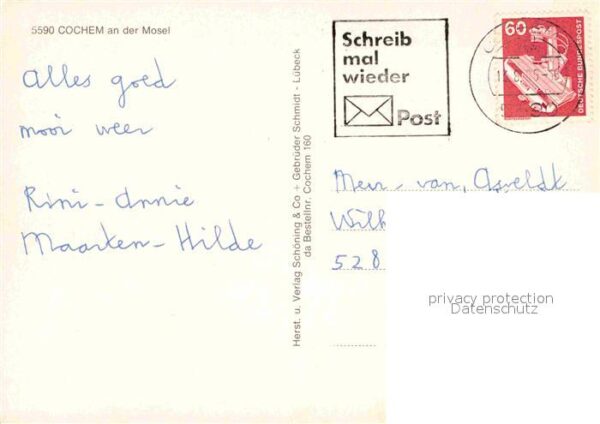 5590 COCHEM an der Mosel
Alles goed
mooi weer
Rini - Annie
Maarten - Hilde
Herst. u. Verlag Schöning & Co + Gebrüder Schmidt - Lübeck
da Bestellnr. Cochem 160
Schreib
mal
wieder
Post
60
DEUTSCHE BUNDESPOST
Meur - van Asveldt
Wilh
528
privacy protection
Datenschutz